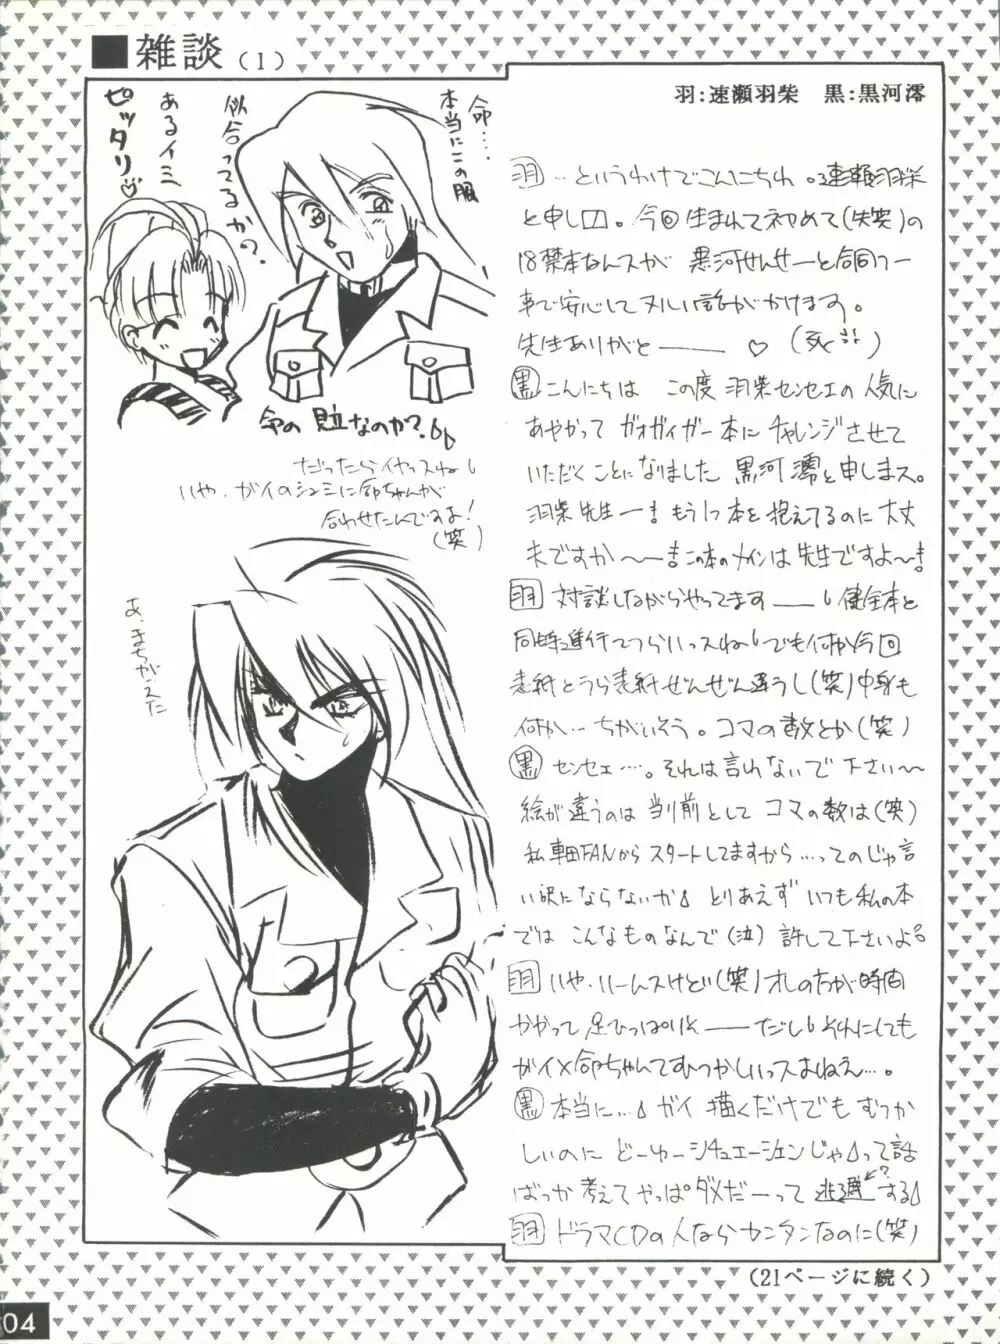 ■雑談(1)
羽:速瀬羽柴　黒:黒河澪
命……
本当にこの服
似合ってるか?
あるイミ
ピッタリ♡
命の見立なのか?
だったらイヤッスね
いや、ガイのシュミに命ちゃんが
合わせたんですよ!
(笑)
あ、まちがえた
羽 …というわけでこんにちわ。速瀬羽柴
と申します。今回生まれて初めて(失笑)の
18禁本なんスが 黒河せんせーと合同
で安心して
先生ありがと―― ♡ (死
黒 こんにちは この度 羽柴センセエの人気に
あやかって ガオガイガー本に チャレンジさせて
いただくことになりました 黒河澪と申しまス。
羽柴先生ー! もう1つ本を抱えてるのに大丈
夫ですか〜―! この本のメインは先生ですよ〜!
羽 対談しながらやってます―― 健全本と
同時進行でつらいっスね でも何か今回
表紙とうら表紙ぜんぜん違うし(笑)中身も
何か… ちがいそう。コマの数とか(笑)
黒 センセェ…。それは言わないで下さい〜
絵が違うのは当り前として コマの数は(笑)
私車田FANからスタートしてますから…ってのじゃ言
い訳にならないか とりあえず いつも私の本
では こんなものなんで(泣) 許して下さいよ
羽 いや、いーんスけど(笑)オレのたが時間
かかって足ひっぱり ―― だし それにしても
ガイ×命ちゃんてむつかしいっスよねえ…。
黒 本当に… ガイ 描くだけでも むつか
しいのに どーゆーシチュエーションじゃって話
ばっか考えて やっぱダメだーって 逃避する
?
羽 ドラマCDの人ならカンタンなのに(笑)
(21ページに続く)
04